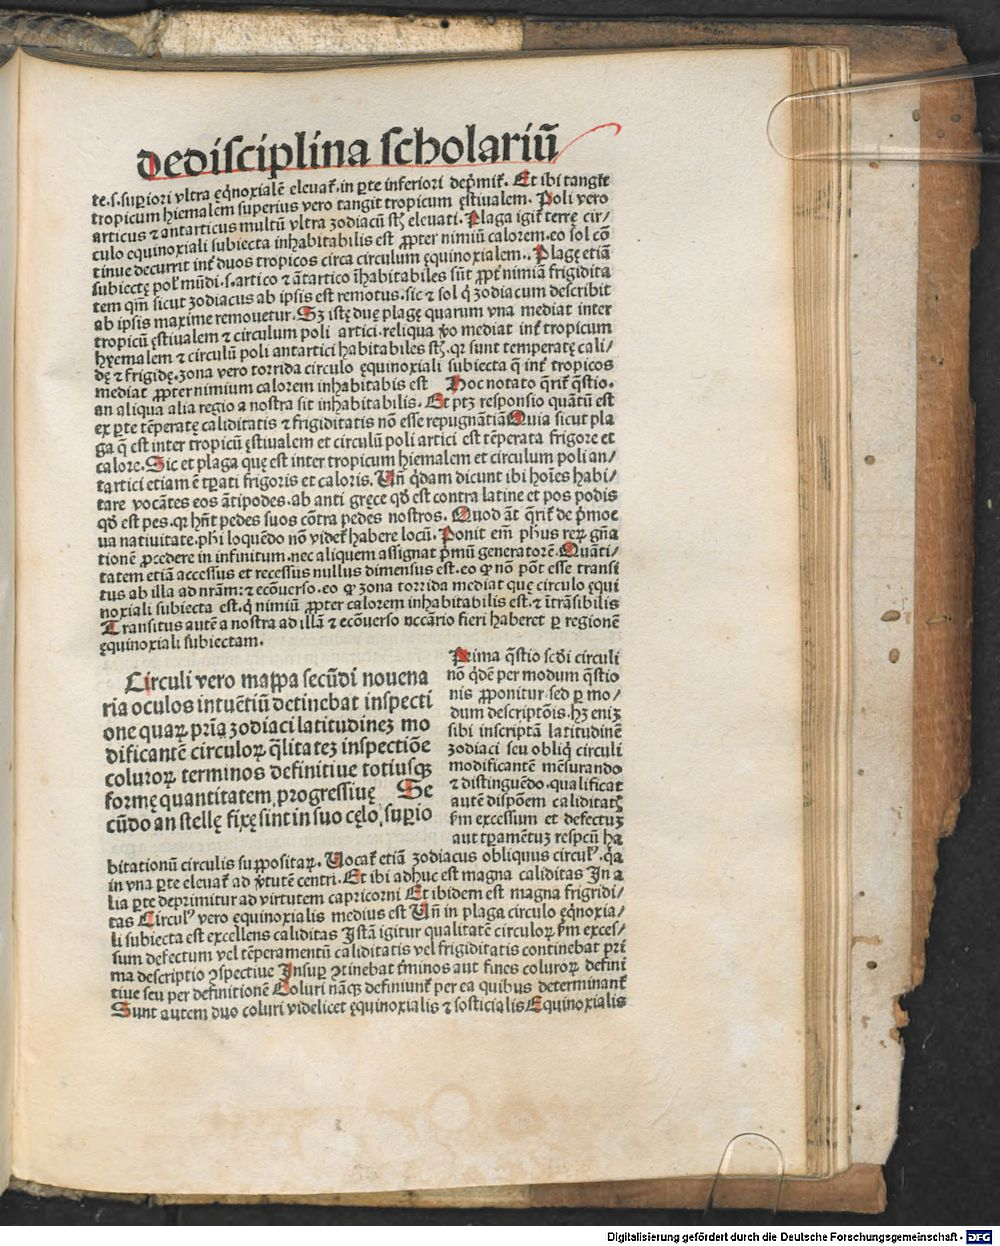 dedisciplina scholariū
te.s.suꝑiori vltra eq̄noxialē eleuaꝉ.in ꝑte inferiori dep̄miꝉ. Et ibi tangit
tropicum hiemalem superius vero tangit tropicum ęstiualem. Poli vero
articus ⁊ antarticus multū vltra zodiacū st̄ eleuati. Plaga igiꝉ terrę cir/
culo equinoxiali subiecta inhabitabilis est ꝓpter nimiū calorem.eo sol cō
tinue decurrit inꝉ duos tropicos circa circulum ęquinoxialem.. Plagę etiā
subiectę pol᷒ mūdi.s.artico ⁊ ātartico īhabitabiles sūt ꝓpꝉ nimiā frigidita
tem qm̄ sicut zodiacus ab ipsis est remotus.sic ⁊ sol q̇ zodiacum describit
ab ipsis maxime remouetur. Sꝫ istę duę plagę quarum vna mediat inter
tropicū ęstiualem ⁊ circulum poli artici.reliqua v̄o mediat inꝉ tropicum
hyemalem ⁊ circulū poli antartici habitabiles st̄.qꝛ sunt temperatę cali/
dę ⁊ frigidę.zona vero torrida circulo ęquinoxiali subiecta q̄ inꝉ tropicos
mediat ꝓpter nimium calorem inhabitabis est Hoc notato q̄riꝉ q̄stio.
an aliqua alia regio a nostra sit inhabitabilis. Et ptꝫ responsio quātū est
ex ꝑte tēperatę caliditatis ⁊ frigiditatis nō esse repugnātiā Quia sicut pla
ga q̄ est inter tropicū ęstiualem et circulū poli artici est tēperata frigore et
calore. Sic et plaga quę est inter tropicum hiemalem et circulum poli an/
tartici etiam ē tꝑati frigoris et caloris. Vn̄ q̇dam dicunt ibi hoīes habi/
tare vocātes eos ātipodes.ab anti gręce qđ est contra latine et pos podis
qđ est pes.qꝛ hn̄t pedes suos cōtra pedes nostros. Quod āt q̄riꝉ de p̄moe
ua natiuitate.phi loquēdo nō videꝉ habere locū. Ponit em̄ phus reꝝ gn̄a
tionē ꝓcedere in infinitum.nec aliquem assignat p̄mū generatorē. Quāti/
tatem etiā accessus et recessus nullus dimensus est.eo ꝙ nō pōt esse transi
tus ab illa ad nrām:⁊ ecōuerso.eo ꝙ zona torrida mediat quę circulo ęqui
noxiali subiecta est.q̇ nimiū ꝓpter calorem inhabitabilis est.⁊ ītrāsibilis
Transitus autē a nostra ad illā ⁊ ecōuerso nccārio fieri haberet ꝑ regionē
ęquinoxiali subiectam.
Circuli vero mappa secūdi nouena
ria oculos intuētiū detinebat inspecti
one quaꝝ pria zodiaci latitudineꝫ mo
dificantē circuloꝝ q̄litateꝫ inspectiōe
coluroꝝ terminos definitiue totiusqꝫ
formę quantitatem progressiuę Se
cūdo an stellę fixę sint in suo cęlo suꝑio
Prima q̄stio scđi circuli
nō q̇dē per modum q̄stio
nis ꝓponitur sed ꝑ mo/
dum descriptōis.hꝫ eniꝫ
sibi inscriptā latitudinē
zodiaci seu obliq̇ circuli
modificantē mēsurando
⁊ distinguēdo.qualificat
autē dispōem caliditatꝭ
ẜm excessum et defectuꝫ
aut tꝑamētuꝫ respcū ha
bitationū circulis suppositaꝝ. Vocaꝉ etiā zodiacus obliquus circul᷒.q̇a
in vna ꝑte eleuaꝉ ad v̇tutē centri. Et ibi adhuc est magna caliditas In a
lia ꝑte deprimitur ad virtutem capricorni Et ibidem est magna frigridi/
tas Circul᷒ vero ęquinoxialis medius est Vn̄ in plaga circulo ęq̄noxia/
li subiecta est excellens caliditas Istā igitur qualitatē circuloꝝ ẜm exces/
sum defectum vel tēperamentū caliditatis vel frigiditatis continebat pri
ma descriptio ꝯspectiue Insuꝑ ꝯtinebat ꝉminos aut fines coluroꝝ defini
tiue seu per definitionē Coluri nāqꝫ definiunꝉ per ea quibus determinanꝉ
Sunt autem duo coluri videlicet ęquinoxialis ⁊ solsticialis Equinoxialis
Digitalisierung gefördert durch die Deutsche Forschungsgemeinschaft - DFG